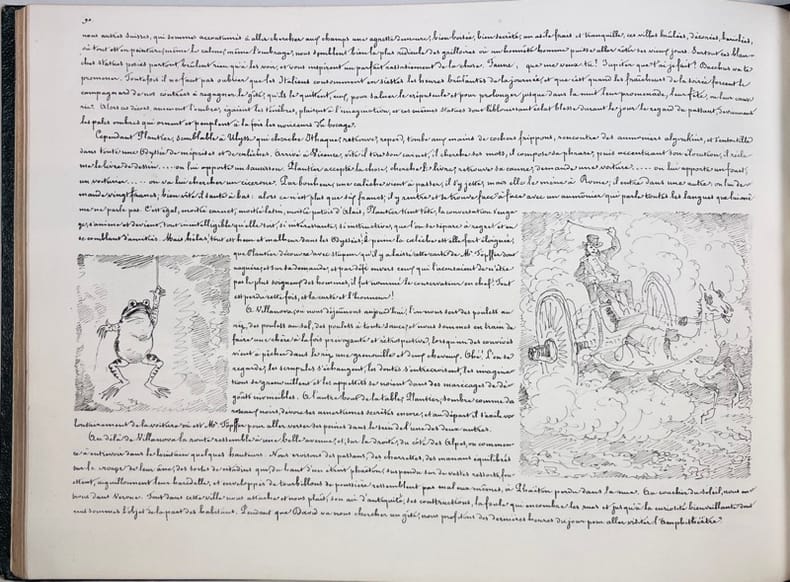 nous autres Suisses, qui sommes accoutumés à aller chercher aux champs une agreste demeure, bien boisée, bien abritée, un asile frais et tranquille, ces villas brûlées, décorées,
où tout est en peinture, même le calme, même l'ombrage, nous semblent bien le plus ridicule des grilloirs où un honnête homme puisse aller rôtir ses vieux jours. Surtout ces blan-
ches statues posées partout, brûlent rien qu'à les voir, et vous inspirent un parfait
promener. Toutefois il ne faut pas oublier que les Italiens consomment en siestes les heures brûlantes de la journée, et que c'est quand les fraîcheurs de la soirée forcent le
campagnard de nos contrées à regagner le gîte, qu'ils le quittent, eux, pour saluer le crépuscule et pour prolonger jusque dans la nuit leur promenade, leur fête, ou leur cause-
rie. Alors ces Dieux, amenant l'ombre, égaient les ténèbres, plaisent à l'imagination, et ces mêmes statues dont l'éblouissant éclat blesse durant le jour le regard du passant, deviennent
les pâles ombres qui ornent et peuplent à la fois les noirceurs du bocage.
Cependant Plantier, semblable à Ulysse qui cherche Ithaque, retrouve, reperd, tombe aux mains de cochers frippons, rencontre des aumôniers algériens, et s'entortille
dans toute une Odyssée de méprises et de calèches. Arrivé à Vicence, vite il tire son carnet, il cherche ses mots, il compose sa phrase, puis accentuant son élocution, il récla-
me le livre de dessin.... on lui apporte un saucisson. Plantier accepte la chose, cherche le livre, retrouve sa canne, demande une voiture.... on lui apporte un fouet,
un voiturier.... on va lui chercher un cicerone. Par bonheur une calèche vient à passer, il s'y jette, mais elle le mène à Rome; il entre dans une autre, on lui de-
mande vingt francs, bien vite il saute à bas: alors ce n'est plus que six francs, il y rentre et se trouve face à face avec un aumônier qui parle toutes les langues que lui-mê-
me ne parle pas. C'est égal, moitié carnet, moitié latin, moitié patois d'Alais, Plantier tient tête, la conversation s'enga-
ge, s'anime et devient, tout inintelligible qu'elle soit, si intéressante, si instructive, que l'on se sépare à regret et en
se comblant d'amitiés. Mais hélas, tout est heur et malheur dans les Odyssées: à peine la calèche est-elle fort éloignée,
que Plantier découvre avec stupeur qu'il y a laissé cette canne de Mr Töpffer dont
naguères, et sur sa demande, et par dépit envers ceux qui l'accusaient de n'être
pas le plus soigneux des hommes, il fut nommé le conservateur en chef! Tout
est perdu cette fois, et la canne et l'honneur!
A Villanova, où nous déjeûnons aujourd'hui, l'on nous sert des poulets au
riz, des poulets au sel, des poulets à toute sauce, et nous sommes en train de
faire une chère à la fois prévoyante et rétrospective, lorsqu'un des convives
vient à pêcher dans le riz, une grenouille et deux cheveux. Ohé! L'on se
regarde, les scrupules s'échangent, les doutes s'entrecroisent, les imagina-
tions se grenouillent et les appétits se noient dans des marécages de dé-
goûts invincibles. A l'autre bout de la table, Plantier, sombre comme du
roseau noir, dévore les amertumes secrètes encore, et au départ il s'achève
loin de la voiture où est Mr Töpffer pour aller verser ses peines dans le sein de l'une des deux autres.
Au delà de Villanova la route ressemble à une belle avenue, et, sur la droite, du côté des Alpes, on commen-
ce à entrevoir dans le lointain quelques hauteurs. Nous croisons des passans, des charrettes, des manans équilibrés
sur la croupe de leur âne, des sortes de citadins qui, du haut d'un étroit phaéton, suspendu sur de vastes ressorts, fou-
ettent, aiguillonnent leur haridelle, et enveloppés de tourbillons de poussière ressemblent pas mal eux-mêmes, à Phaëton perdu dans la nue. Au coucher du soleil, nous en-
trons dans Verone. Tout dans cette ville nous attache et nous plaît, son air d'antiquité, ses constructions, la foule qui encombre les rues et jusqu'à la curiosité bienveillante dont
nous sommes l'objet de la part des habitans. Pendant que David va nous chercher un gîte, nous profitons des dernières heures du jour pour aller visiter l'Amphithéâtre.